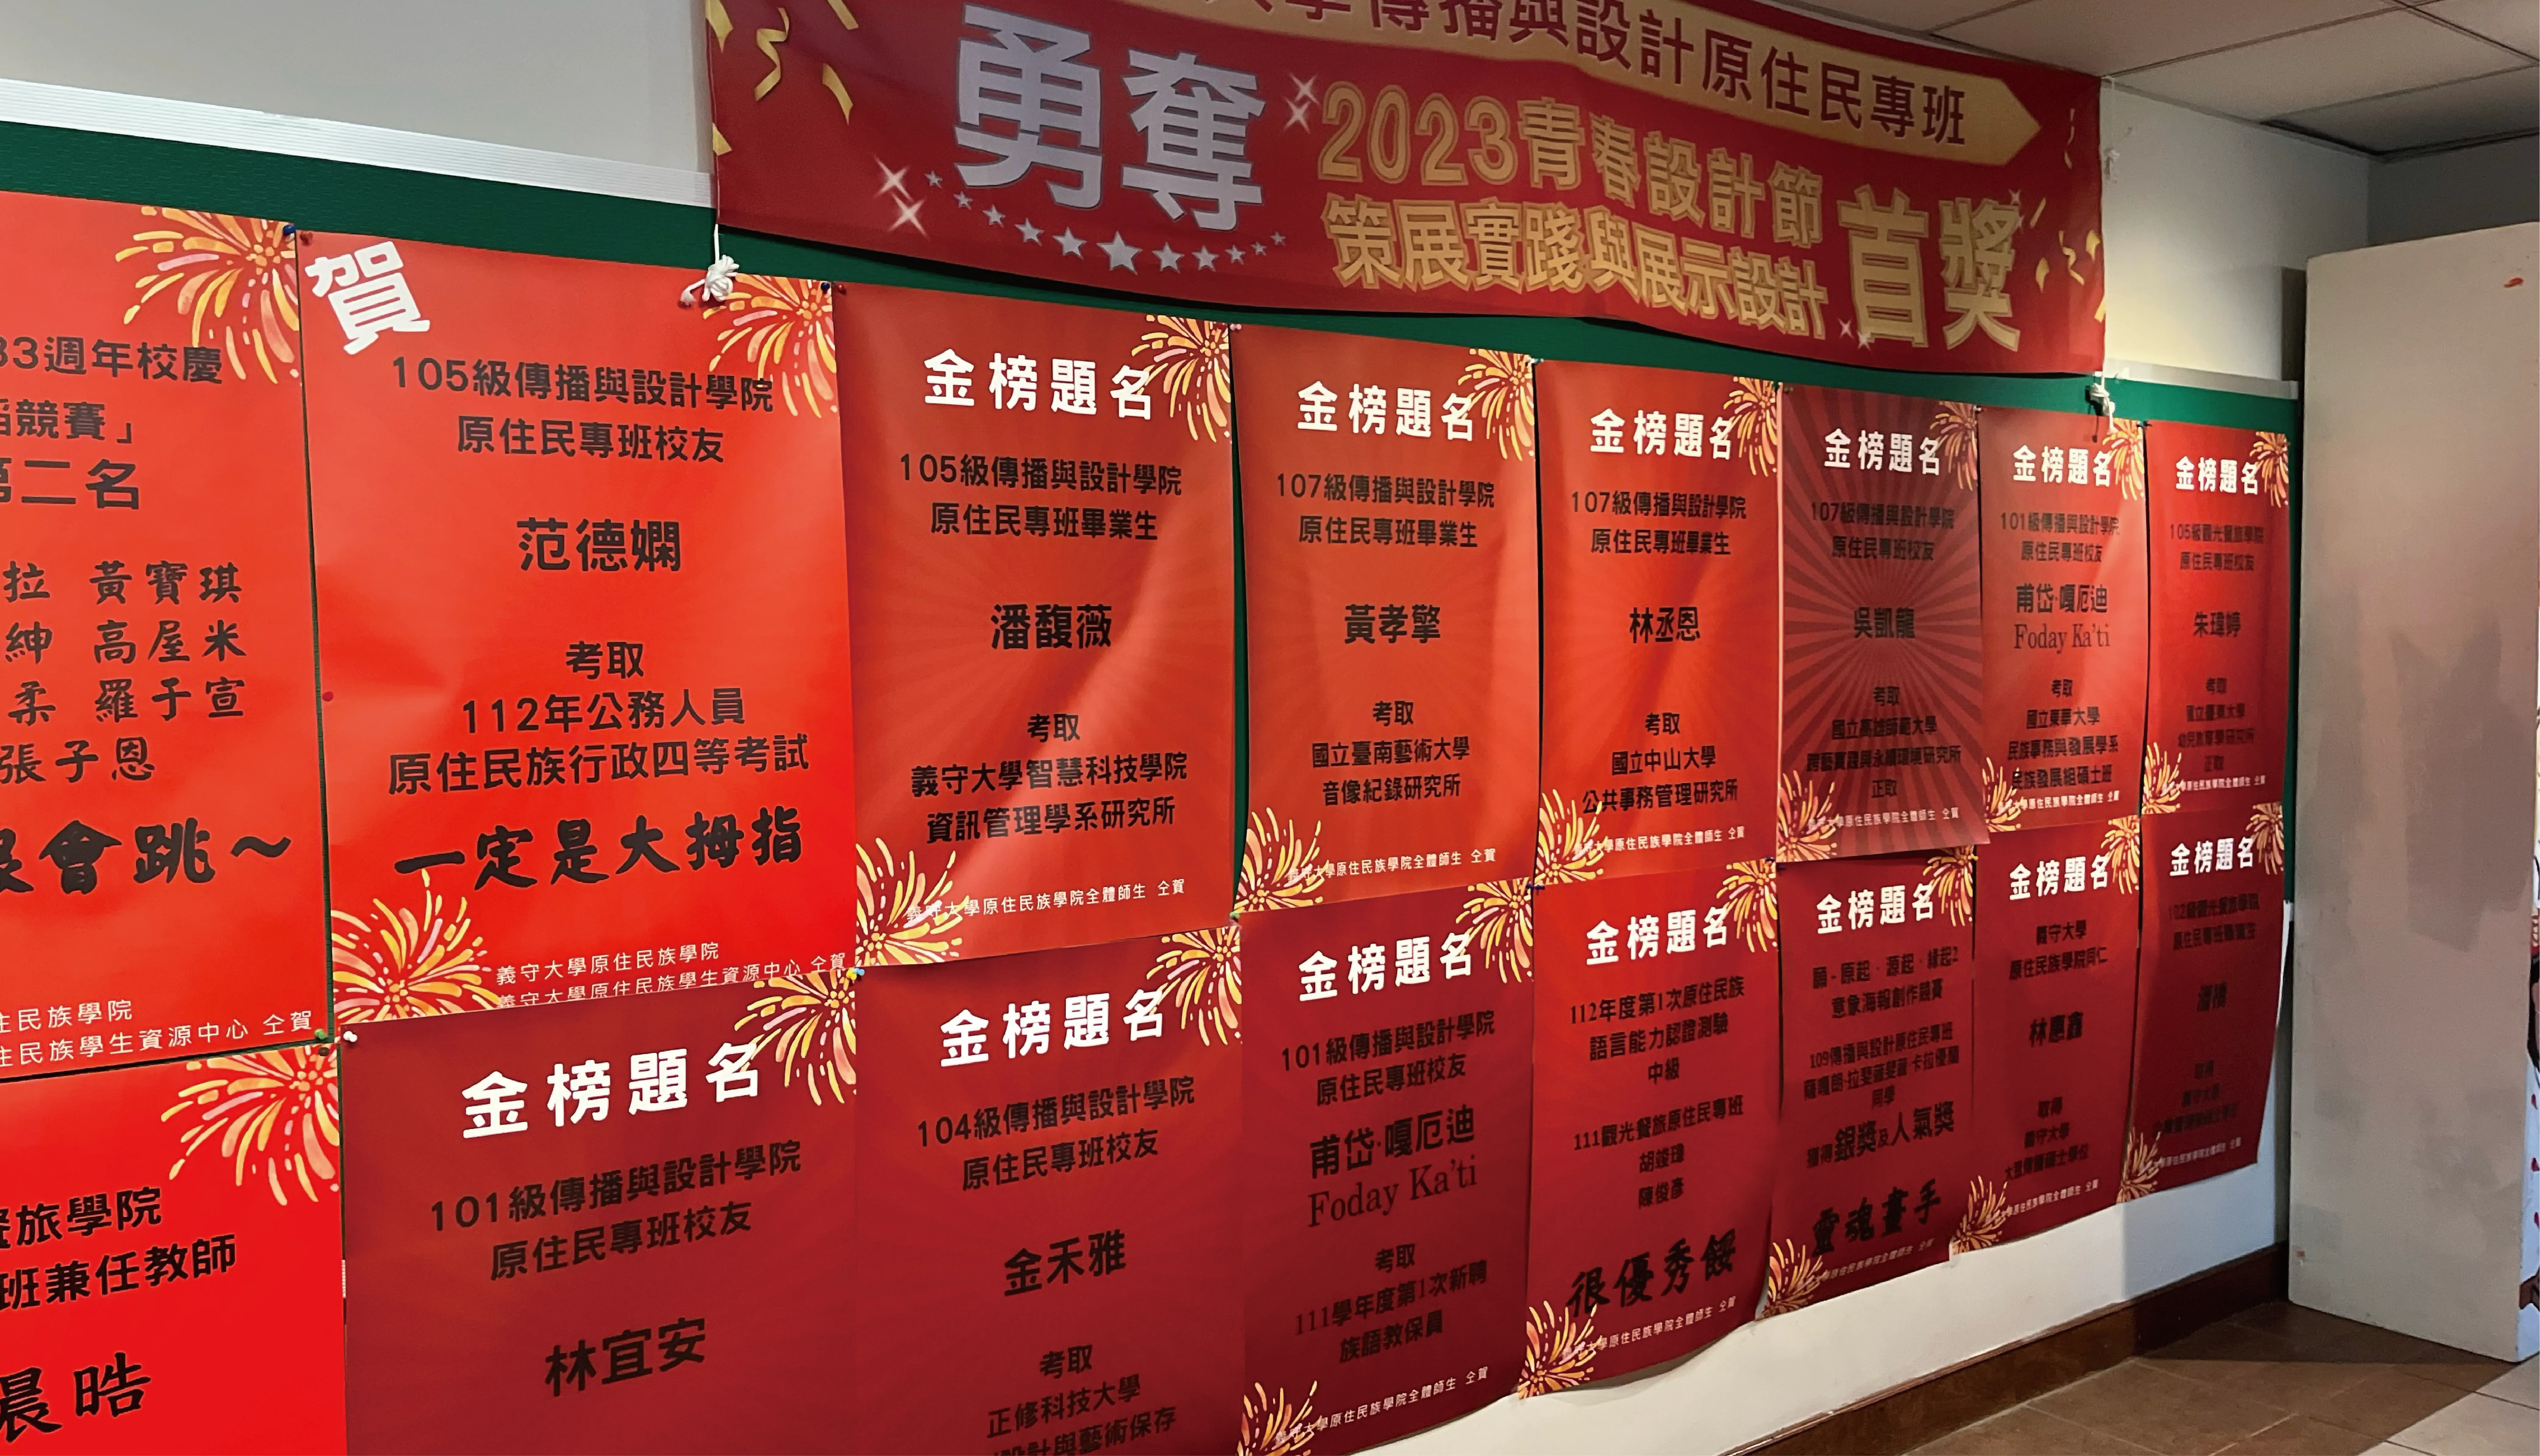 學傳播與設計原住民專班
勇奪
2023青春設計節
策展實踐與展示設計
首獎
33週年校慶
競賽」
第二名
拉 黃寶琪
紳 高屋米
柔 羅于宣
張子恩
會跳~
住民族學院
住民族學生資源中心 仝賀
賀
105級傳播與設計學院
原住民專班校友
范德嫻
考取
112年公務人員
原住民族行政四等考試
一定是大拇指
義守大學原住民族學院
義守大學原住民族學生資源中心 仝賀
金榜題名
105級傳播與設計學院
原住民專班畢業生
潘馥薇
考取
義守大學智慧科技學院
資訊管理學系研究所
義守大學原住民族學院全體師生 仝賀
金榜題名
107級傳播與設計學院
原住民專班畢業生
黃孝擎
考取
國立臺南藝術大學
音像紀錄研究所
義守大學原住民族學院全體師生 仝賀
金榜題名
107級傳播與設計學院
原住民專班畢業生
林丞恩
考取
國立中山大學
公共事務管理研究所
義守大學原住民族學院全體師生 仝賀
金榜題名
107級傳播與設計學院
原住民專班校友
吳凱龍
考取
國立高雄師範大學
跨藝實踐與永續環境研究所
正取
義守大學原住民族學院全體師生 仝賀
金榜題名
101級傳播與設計學院
原住民專班校友
甫岱·嘎厄迪
Foday Ka'ti
考取
國立東華大學
民族事務與發展學系
民族發展組碩士班
義守大學原住民族學院全體師生 仝賀
金榜題名
105級觀光餐旅學院
原住民專班校友
朱瑋婷
考取
國立臺東大學
幼兒教育學研究所
正取
義守大學原住民族學院全體師生 仝賀
餐旅學院
班兼任教師
晨晧
金榜題名
101級傳播與設計學院
原住民專班校友
林宜安
金榜題名
104級傳播與設計學院
原住民專班校友
金禾雅
考取
正修科技大學
設計與藝術保存
金榜題名
101級傳播與設計學院
原住民專班校友
甫岱·嘎厄迪
Foday Ka'ti
考取
111學年度第1次新聘
族語教保員
義守大學原住民族學院全體師生 仝賀
金榜題名
112年度第1次原住民族
語言能力認證測驗
中級
111觀光餐旅原住民專班
胡竣瑋
陳俊彥
很優秀餒
義守大學原住民族學院全體師生 仝賀
金榜題名
願-原起·源起·緣起2
意象海報創作競賽
109傳播與設計原住民專班
同學
獲得銀獎及人氣獎
靈魂畫手
義守大學原住民族學院全體師生 仝賀
金榜題名
義守大學
原住民族學院同仁
林惠鑫
取得
義守大學
義守大學原住民族學院全體師生 仝賀
金榜題名
102級觀光餐旅學院
原住民專班畢業生
取得
義守大學
義守大學原住民族學院全體師生 仝賀